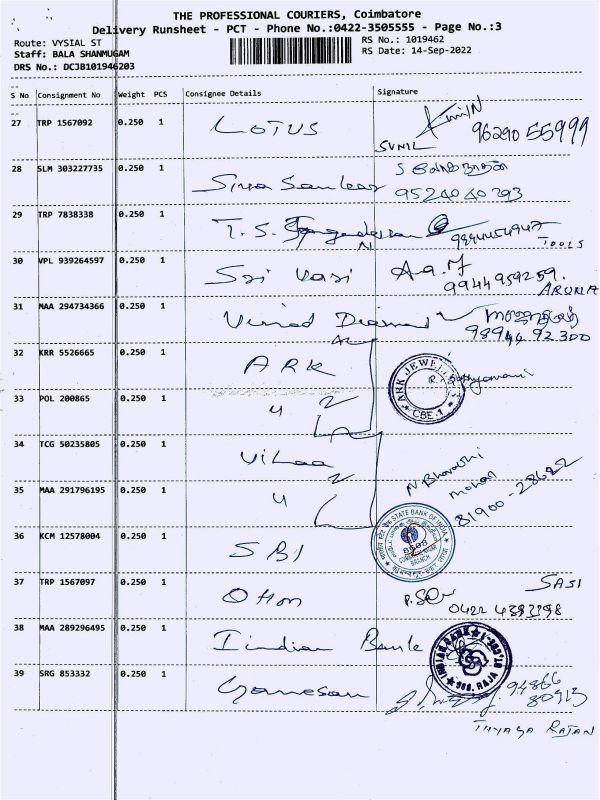 THE PROFESSIONAL COURIERS, Coimbatore
Delivery Runsheet - PCT - Phone No.:0422-3505555 - Page No.:3
Route: VYSIAL ST
RS No.: 1019462
Staff: BALA SHANMUGAM
RS Date: 14-Sep-2022
DRS No.: DCJB101946203
S No Consignment No Weight PCS Consignee Details Signature
27 TRP 1567092 0.250 1 LOTUS SUNIL 96290 55999
28 SLM 303227735 0.250 1 Siva Sankar
29 TRP 7838338 0.250 1 T. S. TOOLS
30 VPL 939264597 0.250 1 Sri Vasi 9944959259. ARUNA
31 MAA 294734366 0.250 1 Vinod Diamond 98944 92300
32 KRR 5526665 0.250 1 ARK ARK JEWELL CBE-1
33 POL 200865 0.250 1 4 2
34 TCG 50235805 0.250 1
35 MAA 291796195 0.250 1 4 2 N. Bharathi mohan 81900-28622
36 KCM 12578004 0.250 1 SBI STATE BANK OF INDIA BRANCH
37 TRP 1567097 0.250 1 SASI
38 MAA 289296495 0.250 1 Indian Bank INDIAN BANK RAJA
39 SRG 853332 0.250 1 Ganesan 94866 80913
THYAGA RAJAN